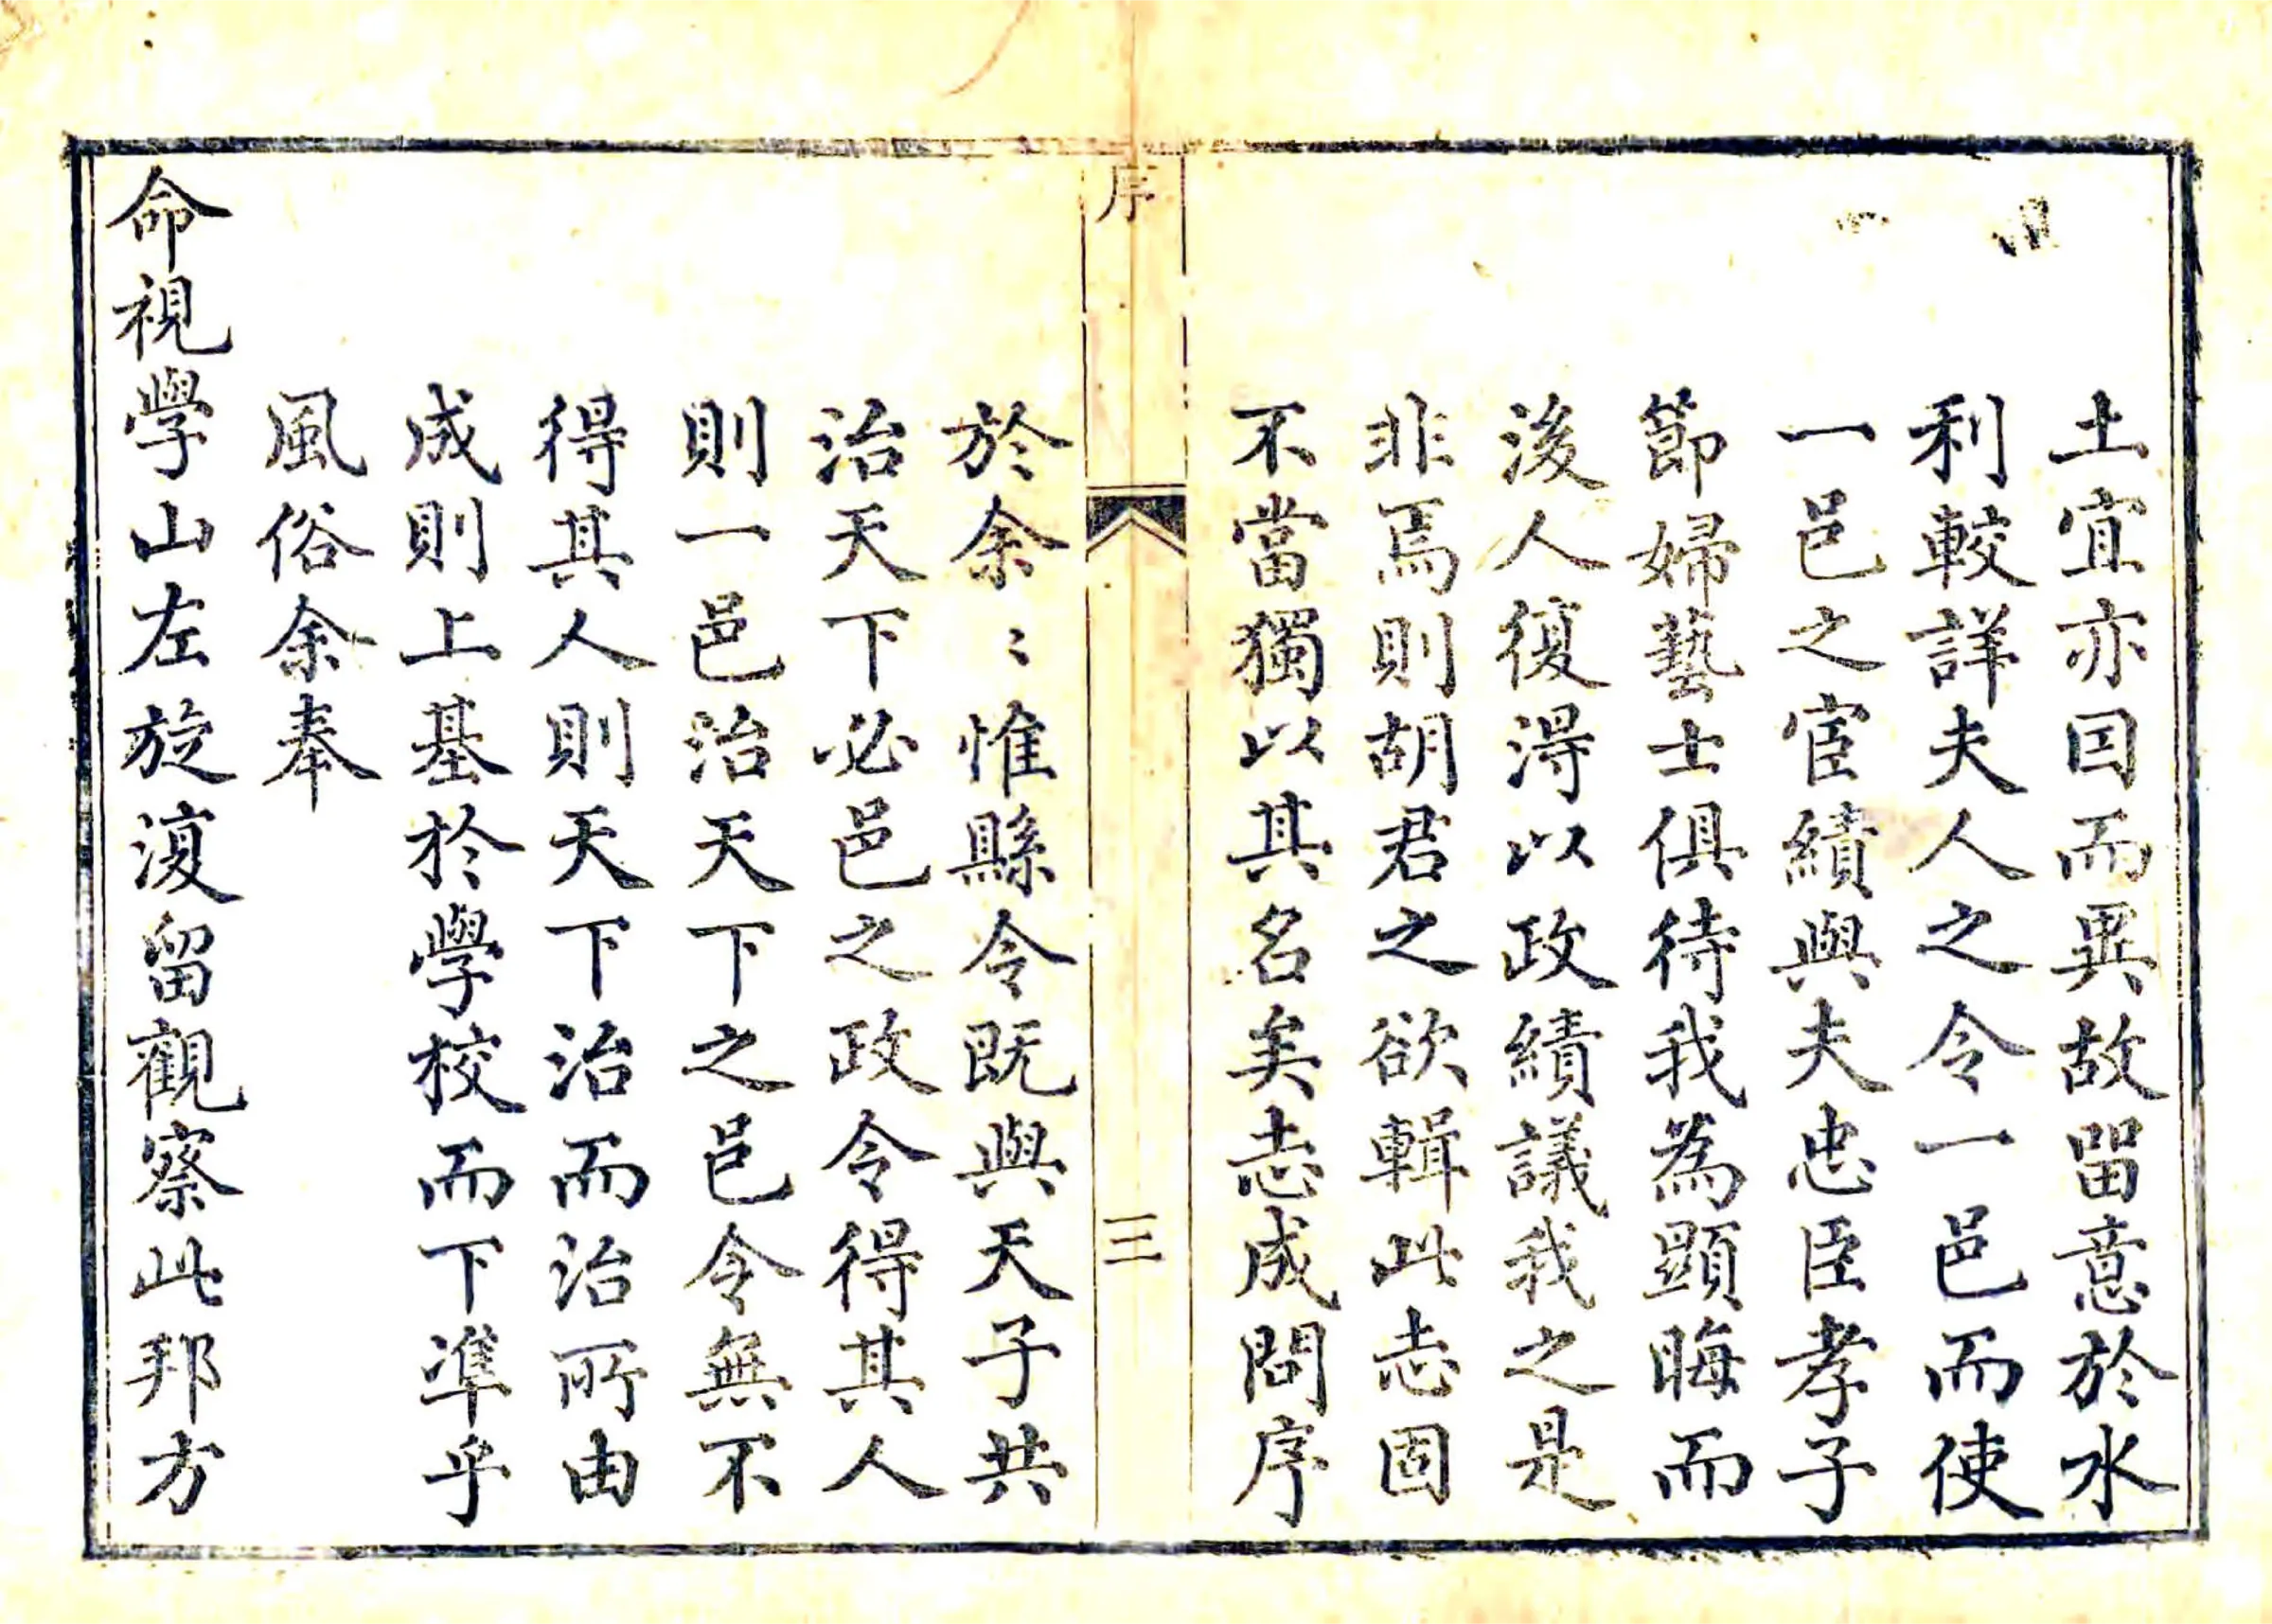 土宜亦因而異故畱意於水
利較詳夫人之令一邑而使
一邑之宦績與夫忠臣孝子
節婦藝士俱待我為顯晦而
後人復得以政績議我之是
非焉則胡君之欲輯此志固
不當獨以其名矣志成問序
序
三
於余〻惟縣令既與天子共
治天下必邑之政令得其人
則一邑治天下之邑令無不
得其人則天下治而治所由
成則上基於學校而下準乎
風俗余奉
命視學山左旋復留觀察此邦方